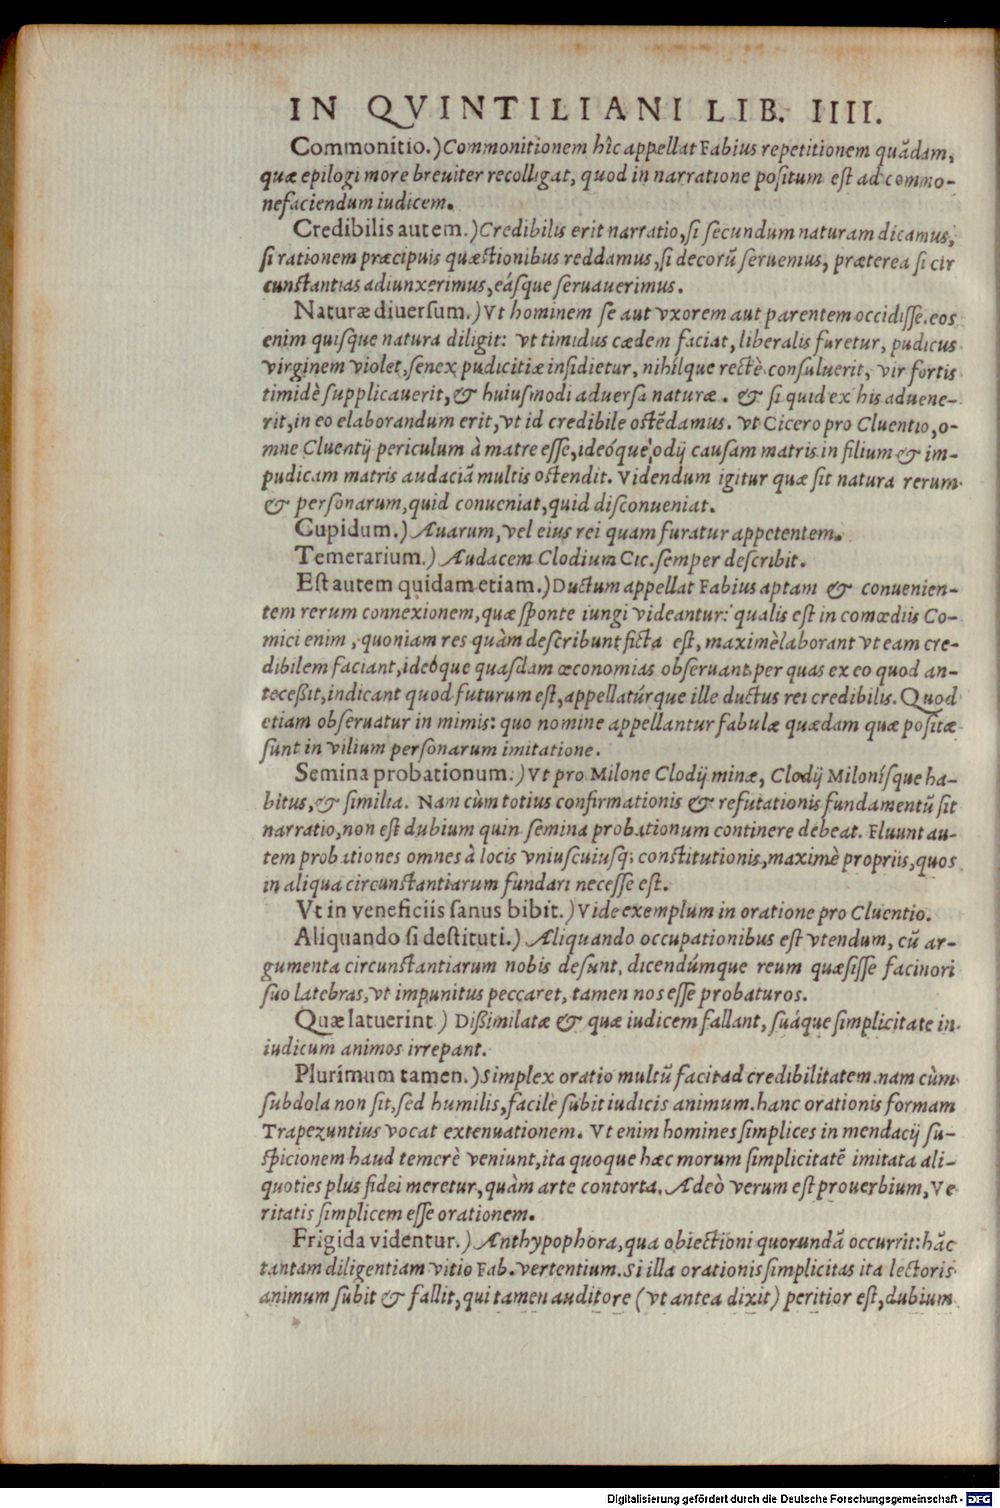 IN QVINTILIANI LIB. IIII.
Commonitio.) Commonitionem hîc appellat Fabius repetitionem quãdam,
quæ epilogi more breuiter recolligat, quod in narratione positum est ad commo-
nefaciendum iudicem.
Credibilis autem.) Credibilis erit narratio, si secundum naturam dicamus,
si rationem præcipuis quæstionibus reddamus, si decorũ seruemus, præterea si cir
cunstantias adiunxerimus, eásque seruauerimus.
Naturæ diuersum.) Vt hominem se aut vxorem aut parentem occidisse. eos
enim quisque natura diligit: vt timidus cædem faciat, liberalis furetur, pudicus
virginem violet, senex pudicitiæ insidietur, nihilque rectè consuluerit, vir fortis
timidè supplicauerit, & huiusmodi aduersa naturæ. & si quid ex his aduene-
rit, in eo elaborandum erit, vt id credibile ostẽdamus. vt Cicero pro Cluentio, o-
mne Cluentij periculum à matre esse, ideóque odij causam matris in filium & im-
pudicam matris audaciã multis ostendit. Videndum igitur quæ sit natura rerum
& personarum, quid conueniat, quid disconueniat.
Cupidum.) Auarum, vel eius rei quam furatur appetentem.
Temerarium.) Audacem Clodium Cic. semper describit.
Est autem quidam etiam.) Ductum appellat Fabius aptam & conuenien-
tem rerum connexionem, quæ sponte iungi videantur: qualis est in comœdiis Co-
mici enim, quoniam res quàm describunt ficta est, maximè laborant vt eam cre-
dibilem faciant, ideóque quasdam œconomias obseruant per quas ex eo quod an-
teceßit, indicant quod futurum est, appellatúrque ille ductus rei credibilis. Quod
etiam obseruatur in mimis: quo nomine appellantur fabulæ quædam quæ positæ
sunt in vilium personarum imitatione.
Semina probationum.) Vt pro Milone Clodij minæ, Clodij Milonísque ha-
bitus, & similia. Nam cùm totius confirmationis & refutationis fundamentũ sit
narratio, non est dubium quin semina probationum continere debeat. Fluunt au-
tem probationes omnes à locis vniuscuiusq; constitutionis, maximè propriis, quos
in aliqua circunstantiarum fundari necesse est.
Vt in veneficiis sanus bibit.) Vide exemplum in oratione pro Cluentio.
Aliquando si destituti.) Aliquando occupationibus est vtendum, cũ ar-
gumenta circunstantiarum nobis desunt, dicendúmque reum quæsisse facinori
suo latebras, vt impunitus peccaret, tamen nos esse probaturos.
Quæ latuerint) Dißimilatæ & quæ iudicem fallant, suáque simplicitate in
iudicum animos irrepant.
Plurimum tamen.) Simplex oratio multũ facit ad credibilitatem. nam cùm
subdola non sit, sed humilis, facilè subit iudicis animum. hanc orationis formam
Trapezuntius vocat extenuationem. Vt enim homines simplices in mendacij su-
spicionem haud temerè veniunt, ita quoque hæc morum simplicitatẽ imitata ali-
quoties plus fidei meretur, quàm arte contorta. Adeò verum est prouerbium, Ve
ritatis simplicem esse orationem.
Frigida videntur.) Anthypophora, qua obiectioni quorundã occurrit: hãc
tantam diligentiam vitio Fab. vertentium. Si illa orationis simplicitas ita lectoris
animum subit & fallit, qui tamen auditore (vt antea dixit) peritior est, dubium
Digitalisierung gefördert durch die Deutsche Forschungsgemeinschaft - DFG